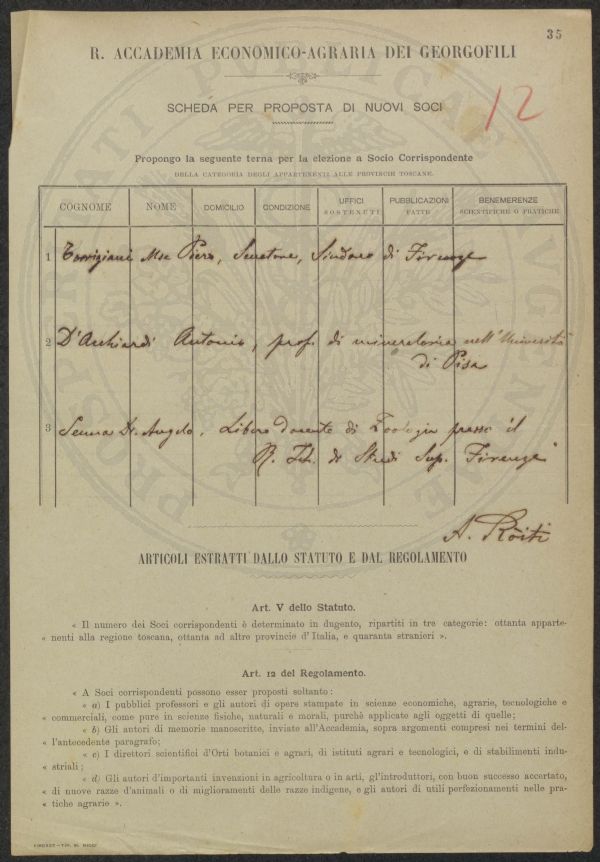 35
R. ACCADEMIA ECONOMICO-AGRARIA DEI GEORGOFILI
12
SCHEDA PER PROPOSTA DI NUOVI SOCI
Propongo la seguente terna per la elezione a Socio Corrispondente
DELLA CATEGORIA DEGLI APPARTENENTI ALLE PROVINCIE TOSCANE.
COGNOME NOME DOMICILIO CONDIZIONE UFFICI SOSTENUTI PUBBLICAZIONI FATTE BENEMERENZE SCIENTIFICHE O PRATICHE
1 Torrigiani Mse Piero, Senatore, Sindaco di Firenze
2 D'Achiardi Antonio, prof. di mineralogia nell'Università
di Pisa
3 Senna Dr. Angelo, Libero docente di Zoologia presso il
R. Ist. di Studi Sup. Firenze
A. Ròiti
ARTICOLI ESTRATTI DALLO STATUTO E DAL REGOLAMENTO
Art. V dello Statuto.
« Il numero dei Soci corrispondenti è determinato in dugento, ripartiti in tre categorie: ottanta apparte-
« nenti alla regione toscana, ottanta ad altre provincie d'Italia, e quaranta stranieri ».
Art. 12 del Regolamento.
« A Soci corrispondenti possono esser proposti soltanto:
« a) I pubblici professori e gli autori di opere stampate in scienze economiche, agrarie, tecnologiche e
« commerciali, come pure in scienze fisiche, naturali e morali, purchè applicate agli oggetti di quelle;
« b) Gli autori di memorie manoscritte, inviate all'Accademia, sopra argomenti compresi nei termini del-
« l'antecedente paragrafo;
« c) I direttori scientifici d'Orti botanici e agrari, di istituti agrari e tecnologici, e di stabilimenti indu-
« striali;
« d) Gli autori d'importanti invenzioni in agricoltura o in arti, gl'introduttori, con buon successo accertato,
« di nuove razze d'animali o di miglioramenti delle razze indigene, e gli autori di utili perfezionamenti nelle pra-
« tiche agrarie ».
FIRENZE – TIP. M. RICCI
PROSPERITATI PUBLICAE AUGENDAE